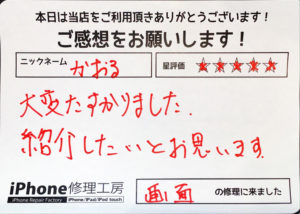 本日は当店をご利用頂きありがとうございます！
ご感想をお願いします！
ニックネーム かおる 星評価 ★★★★★
大変たすかりました.
紹介したいとお思います.
iPhone修理工房
iPhone Repair Factory iPhone/iPad/iPod touch
画面 の修理に来ました